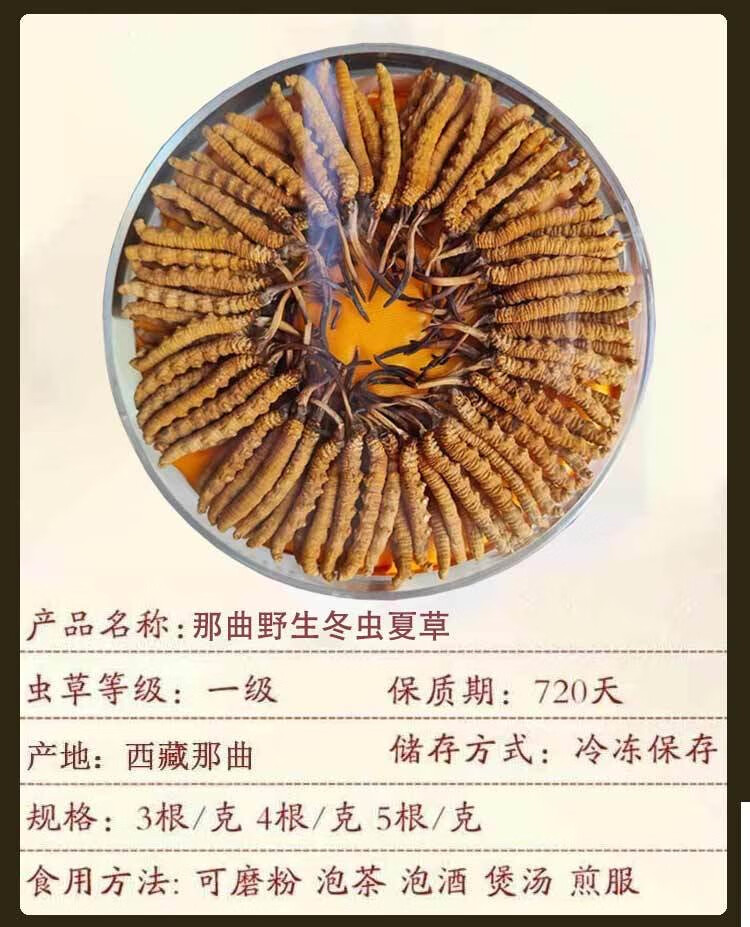 产品名称:那曲野生冬虫夏草
虫草等级：一级 保质期：720天
产地：西藏那曲 储存方式：冷冻保存
规格：3根/克 4根/克 5根/克
食用方法:可磨粉 泡茶 泡酒 煲汤 煎服